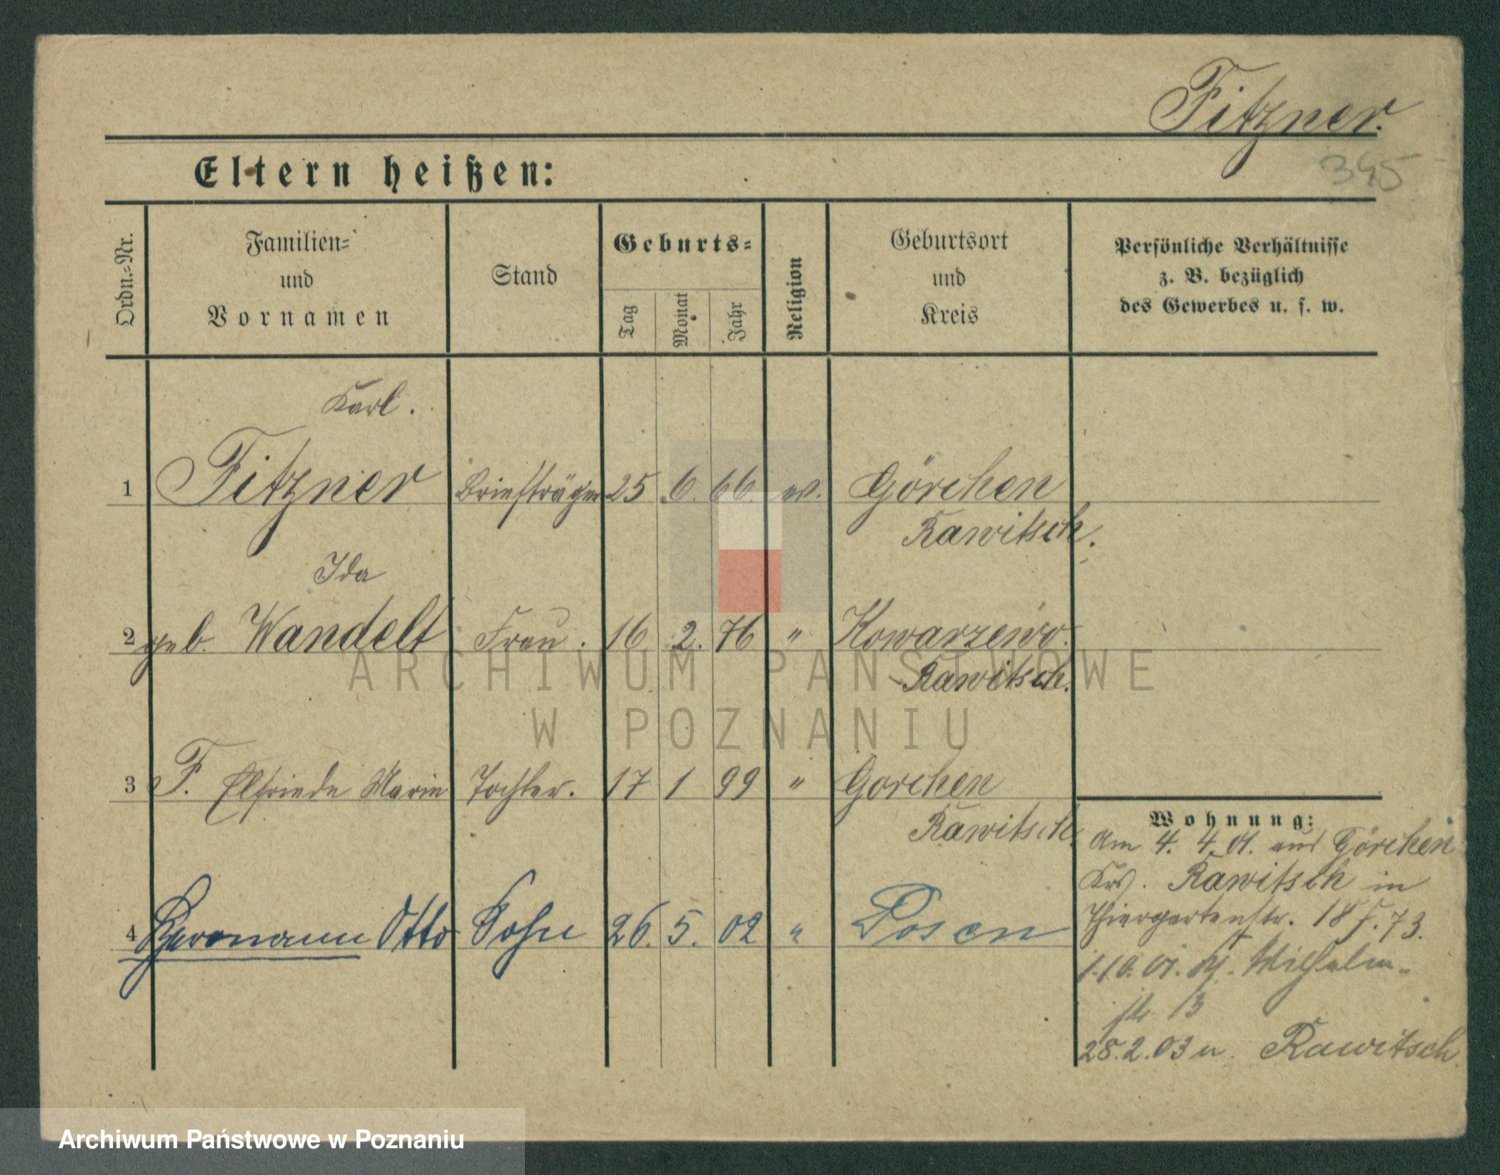 Fitzner.
395
Eltern heißen:
Ordn.-Nr.
Familien-
und
Vornamen
Stand
Geburts-
Tag
Monat
Jahr
Religion
Geburtsort
und
Kreis
Persönliche Verhältnisse
z. B. bezüglich
des Gewerbes u. s. w.
Karl.
1 Fitzner Briefträger 25 6. 66 ev. Görchen
Rawitsch.
Ida
2 geb. Wandelt Frau. 16 2. 76 " Kowarzewo.
Rawitsch.
3 F. Elfriede Marie Tochter. 17 1 99 " Gorchen
Rawitsch.
Wohnung:
Am 4. 4. 01. aus Görchen
Krs. Rawitsch in
Thiergartenstr. 18
4 Hermann Otto Sohn 26. 5. 02 " Posen
1.10.01. Wilhelm-
str. 13
28.2.03 n. Rawitsch
ARCHIWUM PAŃSTWOWE
W POZNANIU
Archiwum Państwowe w Poznaniu